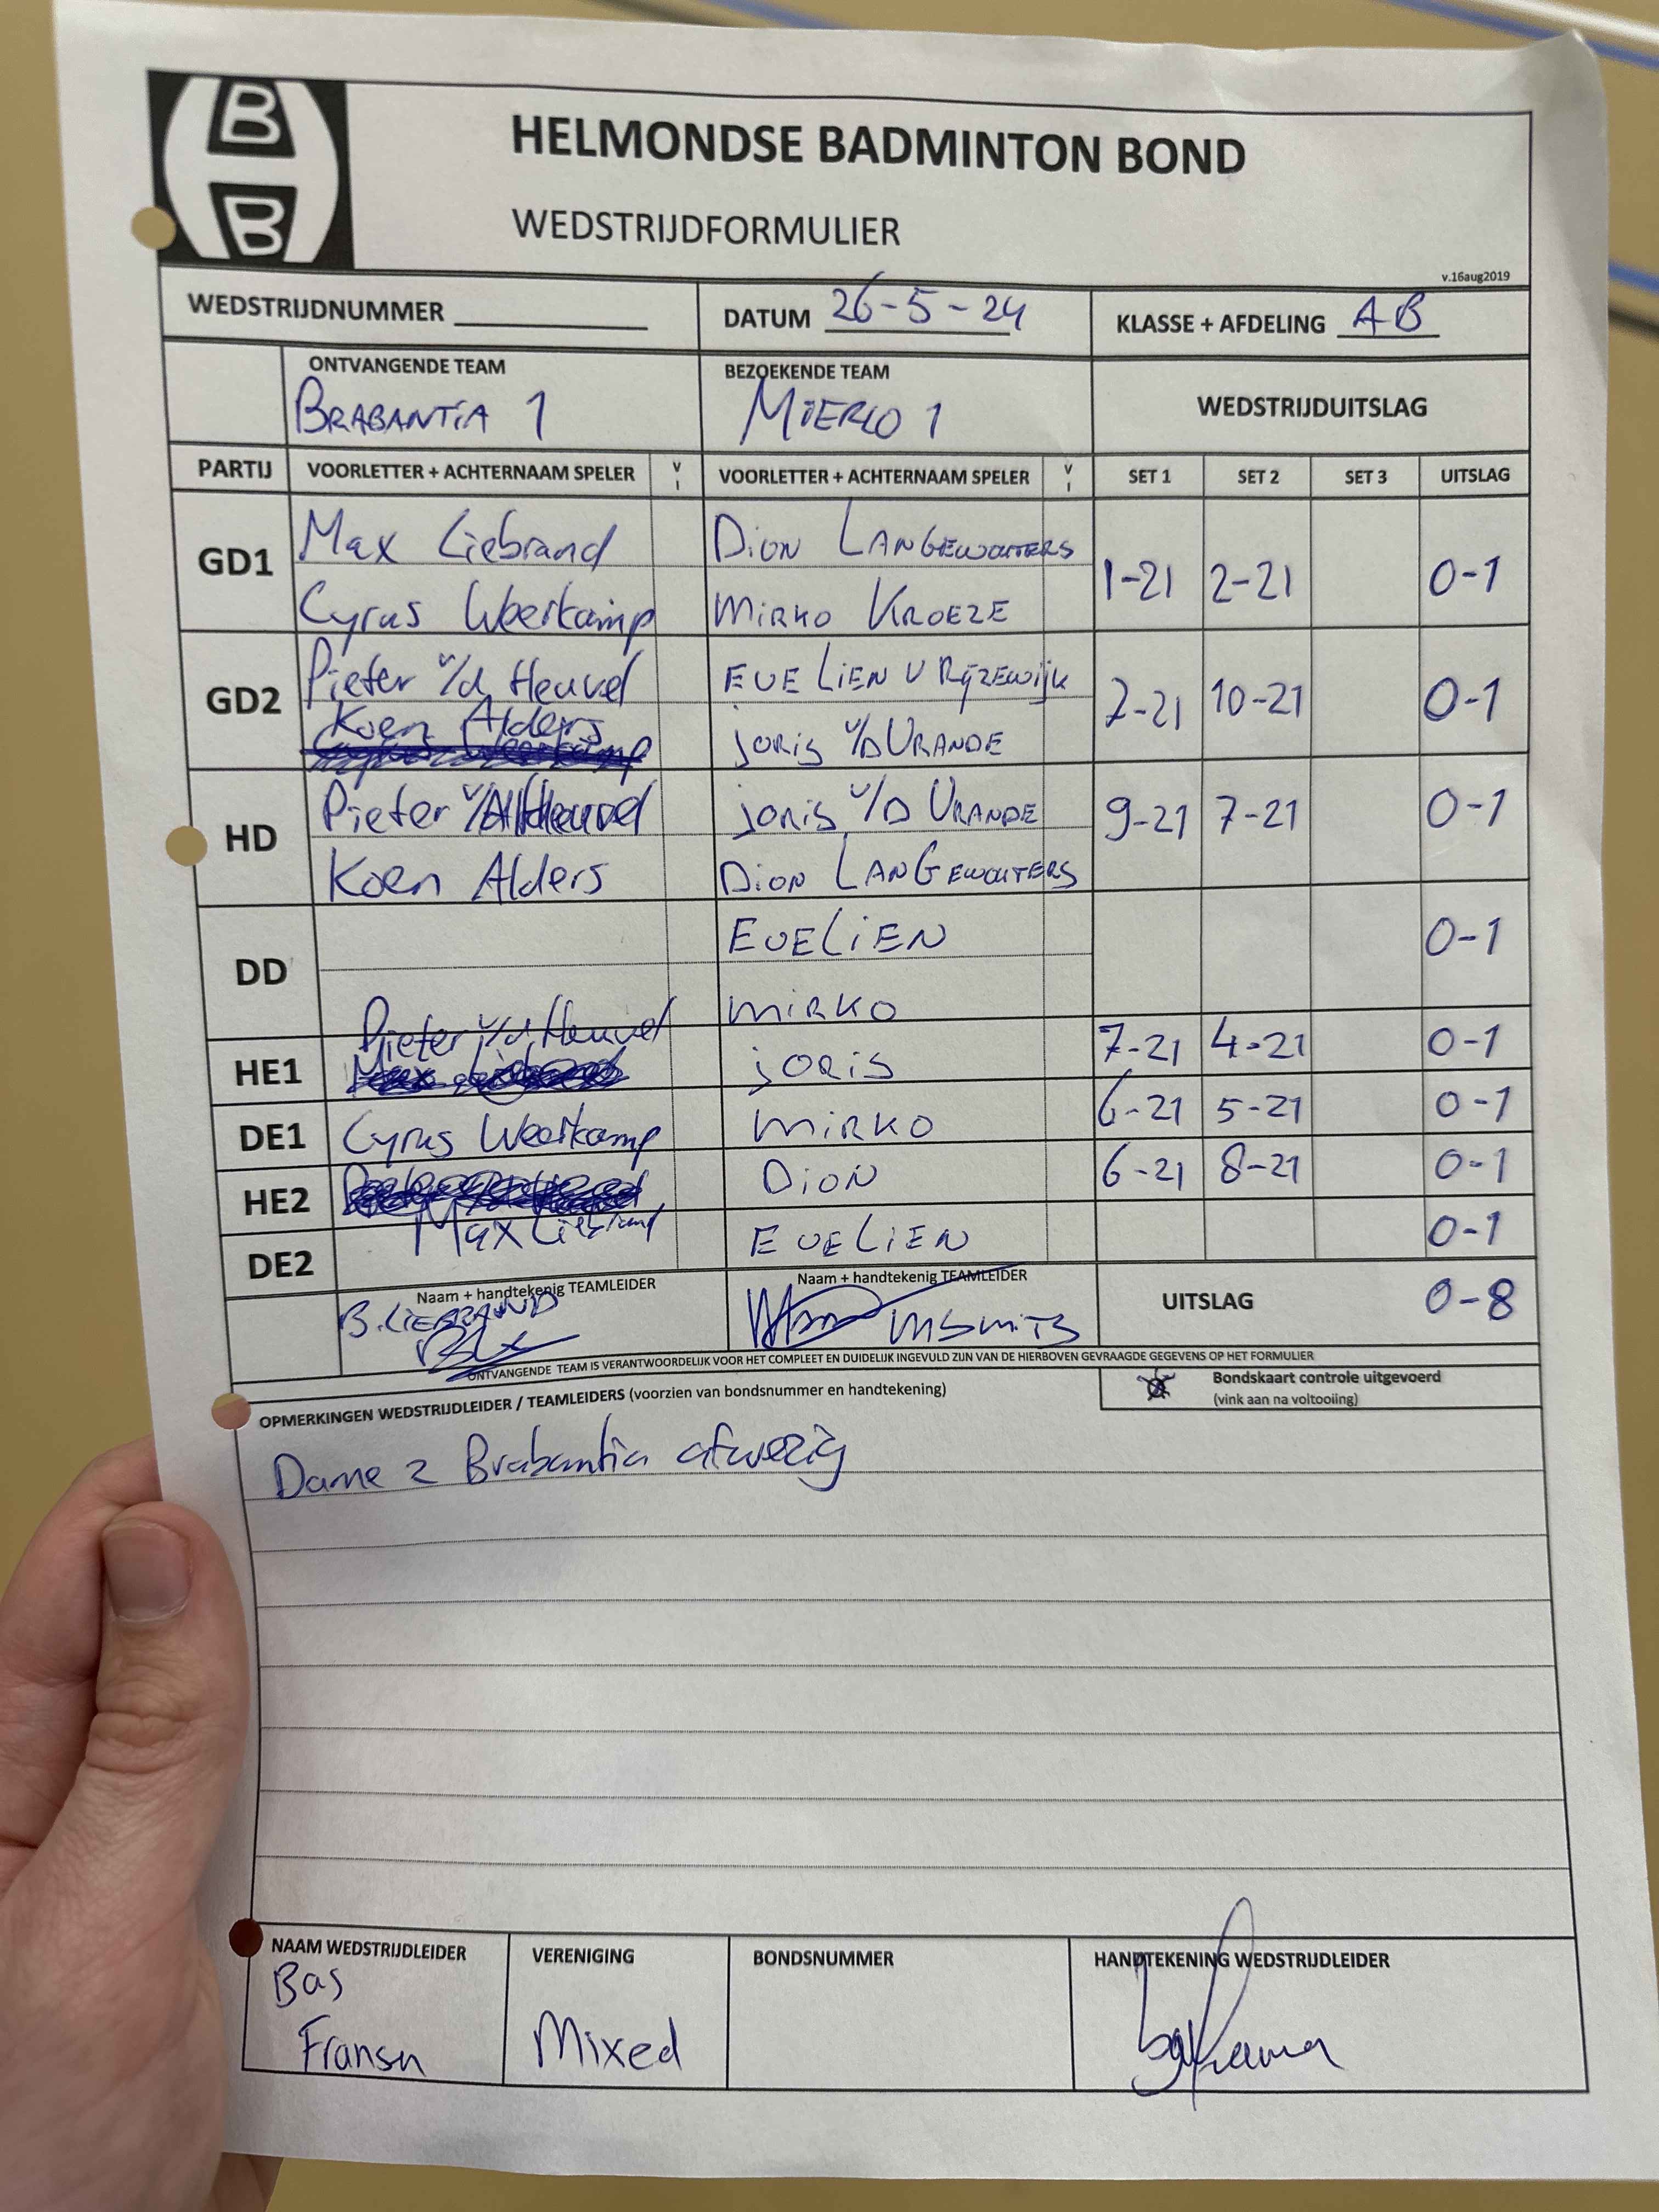 B
B
HELMONDSE BADMINTON BOND
WEDSTRIJDFORMULIER
v.16aug2019
WEDSTRIJDNUMMER DATUM 26-5-24 KLASSE + AFDELING AB
ONTVANGENDE TEAM BEZOEKENDE TEAM WEDSTRIJDUITSLAG
BRABANTIA 1 MIERLO 1
PARTIJ VOORLETTER + ACHTERNAAM SPELER V I VOORLETTER + ACHTERNAAM SPELER V I SET 1 SET 2 SET 3 UITSLAG
GD1 Max Liebrand Dion LANGEWOUTERS 1-21 2-21 0-1
Cyrus Weerkamp MIRKO KROEZE
GD2 Pieter v/d Heuvel EVELIEN V RIJZEWIJK 7-21 10-21 0-1
Koen Alders joris v/D VRANDE
HD Pieter v/d Heuvel joris v/D VRANDE 9-21 7-21 0-1
Koen Alders Dion LANGEWOUTERS
DD EVELIEN 0-1
MIRKO
HE1 Pieter v/d Heuvel joris 7-21 4-21 0-1
DE1 Cyrus Weerkamp MIRKO 6-21 5-21 0-1
HE2 Max Liebrand Dion 6-21 8-21 0-1
DE2 EVELIEN 0-1
Naam + handtekenig TEAMLEIDER Naam + handtekenig TEAMLEIDER UITSLAG 0-8
B. LIEBRAND
ONTVANGENDE TEAM IS VERANTWOORDELIJK VOOR HET COMPLEET EN DUIDELIJK INGEVULD ZIJN VAN DE HIERBOVEN GEVRAAGDE GEGEVENS OP HET FORMULIER
OPMERKINGEN WEDSTRIJDLEIDER / TEAMLEIDERS (voorzien van bondsnummer en handtekening)
Bondskaart controle uitgevoerd
(vink aan na voltooiing)
Dame 2 Brabantia afwezig
NAAM WEDSTRIJDLEIDER VERENIGING BONDSNUMMER HANDTEKENING WEDSTRIJDLEIDER
Bas
Fransn Mixed